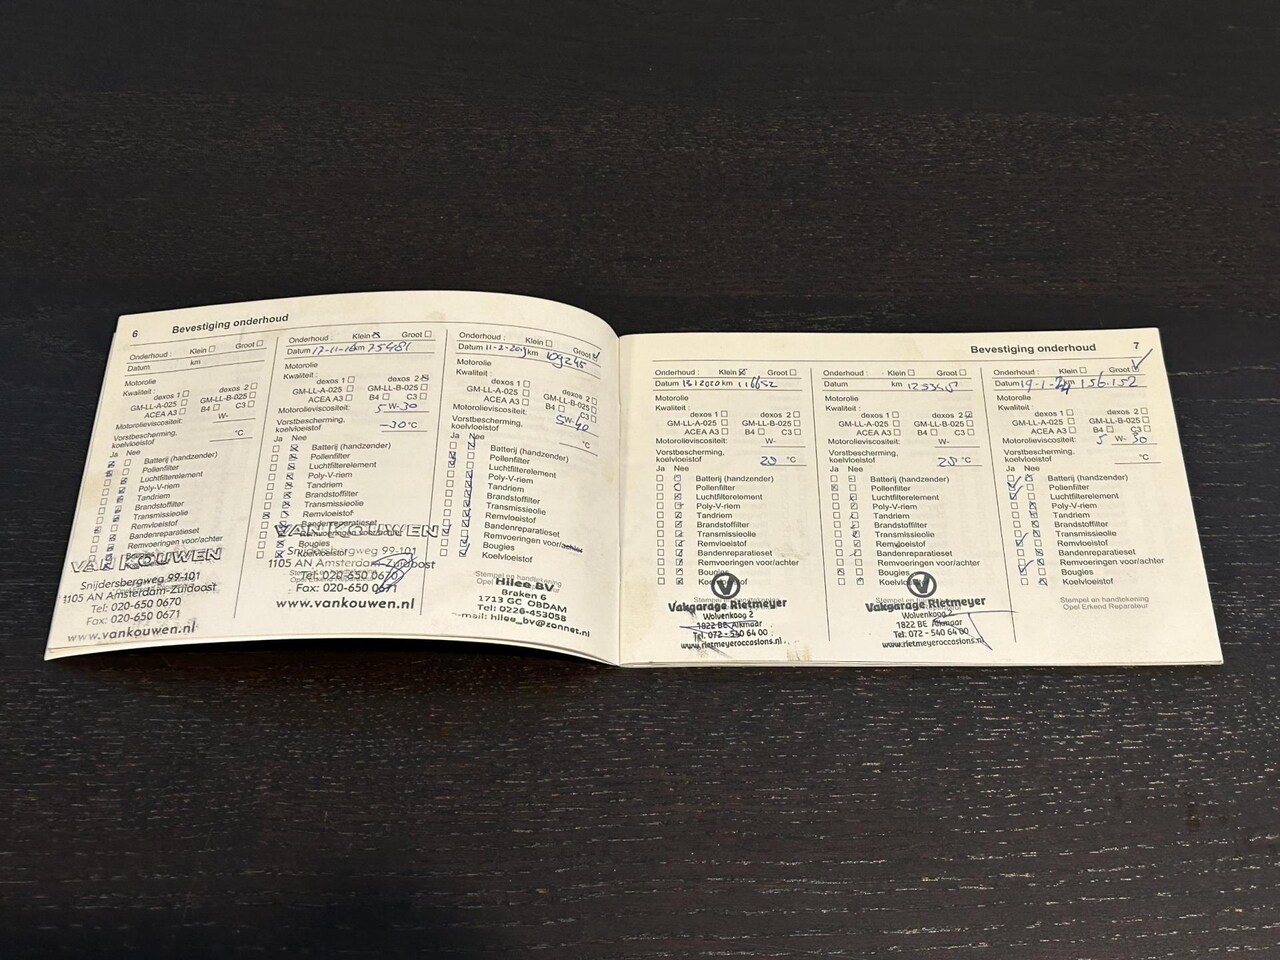 6 Bevestiging onderhoud
Onderhoud : Klein Groot
Datum km
Motorolie
Kwaliteit :
dexos 1 dexos 2
GM-LL-A-025 GM-LL-B-025
ACEA A3 B4 C3
Motorolieviscositeit: W-
Vorstbescherming,
koelvloeistof °C
Ja Nee
Batterij (handzender)
Pollenfilter
Luchtfilterelement
Poly-V-riem
Tandriem
Brandstoffilter
Transmissieolie
Remvloeistof
Bandenreparatieset
Remvoeringen voor/achter
Bougies
VAN KOUWEN
Snijdersbergweg 99-101
1105 AN Amsterdam-Zuidoost
Tel: 020-650 0670
Fax: 020-650 0671
www.vankouwen.nl
Onderhoud : Klein Groot
Datum 17-11-16 km 75481
Motorolie
Kwaliteit :
dexos 1 dexos 2
GM-LL-A-025 GM-LL-B-025
ACEA A3 B4 C3
Motorolieviscositeit: 5 W-30
Vorstbescherming,
koelvloeistof -30 °C
Ja Nee
Batterij (handzender)
Pollenfilter
Luchtfilterelement
Poly-V-riem
Tandriem
Brandstoffilter
Transmissieolie
Remvloeistof
Bandenreparatieset
Remvoeringen voor/achter
Bougies
Koelvloeistof
VAN KOUWEN
Snijdersbergweg 99-101
1105 AN Amsterdam-Zuidoost
Tel: 020-650 0670
Fax: 020-650 0671
www.vankouwen.nl
Onderhoud : Klein Groot
Datum 11-2-2019 km 109245
Motorolie
Kwaliteit :
dexos 1 dexos 2
GM-LL-A-025 GM-LL-B-025
ACEA A3 B4 C3
Motorolieviscositeit: 5W-40
Vorstbescherming,
koelvloeistof °C
Ja Nee
Batterij (handzender)
Pollenfilter
Luchtfilterelement
Poly-V-riem
Tandriem
Brandstoffilter
Transmissieolie
Remvloeistof
Bandenreparatieset
Remvoeringen voor/achter
Bougies
Koelvloeistof
Stempel en handtekening
Hilee BV
Braken 6
1713 GC OBDAM
Tel: 0226-453058
e-mail: hilee_bv@zonnet.nl
Bevestiging onderhoud 7
Onderhoud : Klein Groot
Datum 13 1 2020 km 116652
Motorolie
Kwaliteit :
dexos 1 dexos 2
GM-LL-A-025 GM-LL-B-025
ACEA A3 B4 C3
Motorolieviscositeit: W-
Vorstbescherming,
koelvloeistof 28 °C
Ja Nee
Batterij (handzender)
Pollenfilter
Luchtfilterelement
Poly-V-riem
Tandriem
Brandstoffilter
Transmissieolie
Remvloeistof
Bandenreparatieset
Remvoeringen voor/achter
Bougies
Vakgarage Rietmeyer
Wolvenkoog 2
1822 BE Alkmaar
Tel. 072 - 540 64 00
www.rietmeyeroccasions.nl
Onderhoud : Klein Groot
Datum km
Motorolie
Kwaliteit :
dexos 1 dexos 2
GM-LL-A-025 GM-LL-B-025
ACEA A3 B4 C3
Motorolieviscositeit: W-
Vorstbescherming,
koelvloeistof 28 °C
Ja Nee
Batterij (handzender)
Pollenfilter
Luchtfilterelement
Poly-V-riem
Tandriem
Brandstoffilter
Transmissieolie
Remvloeistof
Bandenreparatieset
Remvoeringen voor/achter
Bougies
Vakgarage Rietmeyer
Wolvenkoog 2
1822 BE Alkmaar
Tel. 072 - 540 64 00
www.rietmeyeroccasions.nl
Onderhoud : Klein Groot
Datum 19-1-24 km 156.152
Motorolie
Kwaliteit :
dexos 1 dexos 2
GM-LL-A-025 GM-LL-B-025
ACEA A3 B4 C3
Motorolieviscositeit: 5 W- 30
Vorstbescherming,
koelvloeistof °C
Ja Nee
Batterij (handzender)
Pollenfilter
Luchtfilterelement
Poly-V-riem
Tandriem
Brandstoffilter
Transmissieolie
Remvloeistof
Bandenreparatieset
Remvoeringen voor/achter
Bougies
Koelvloeistof
Stempel en handtekening
Opel Erkend Reparateur